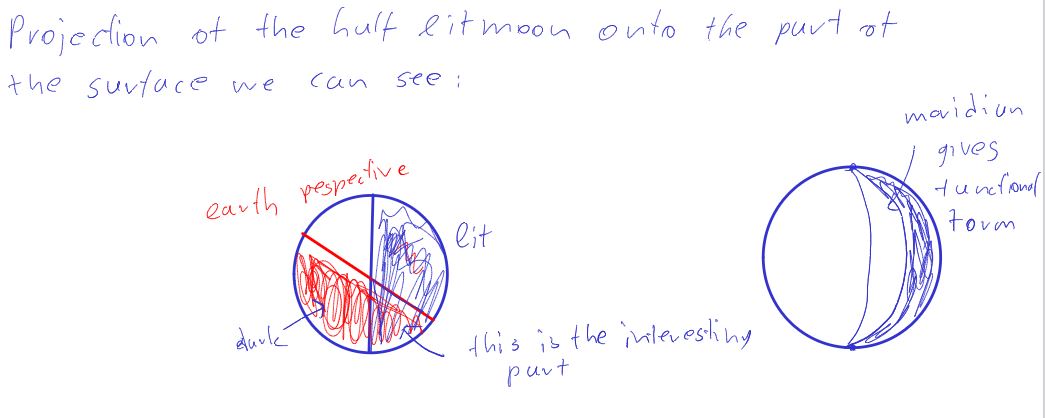 Projection of the half lit moon onto the part of
the surface we can see :
earth pespective
lit
dark
this is the interesting
part
meridian
gives
functional
form